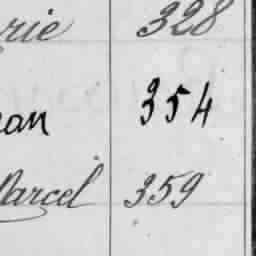 rie 328
ean 354
Marcel 359